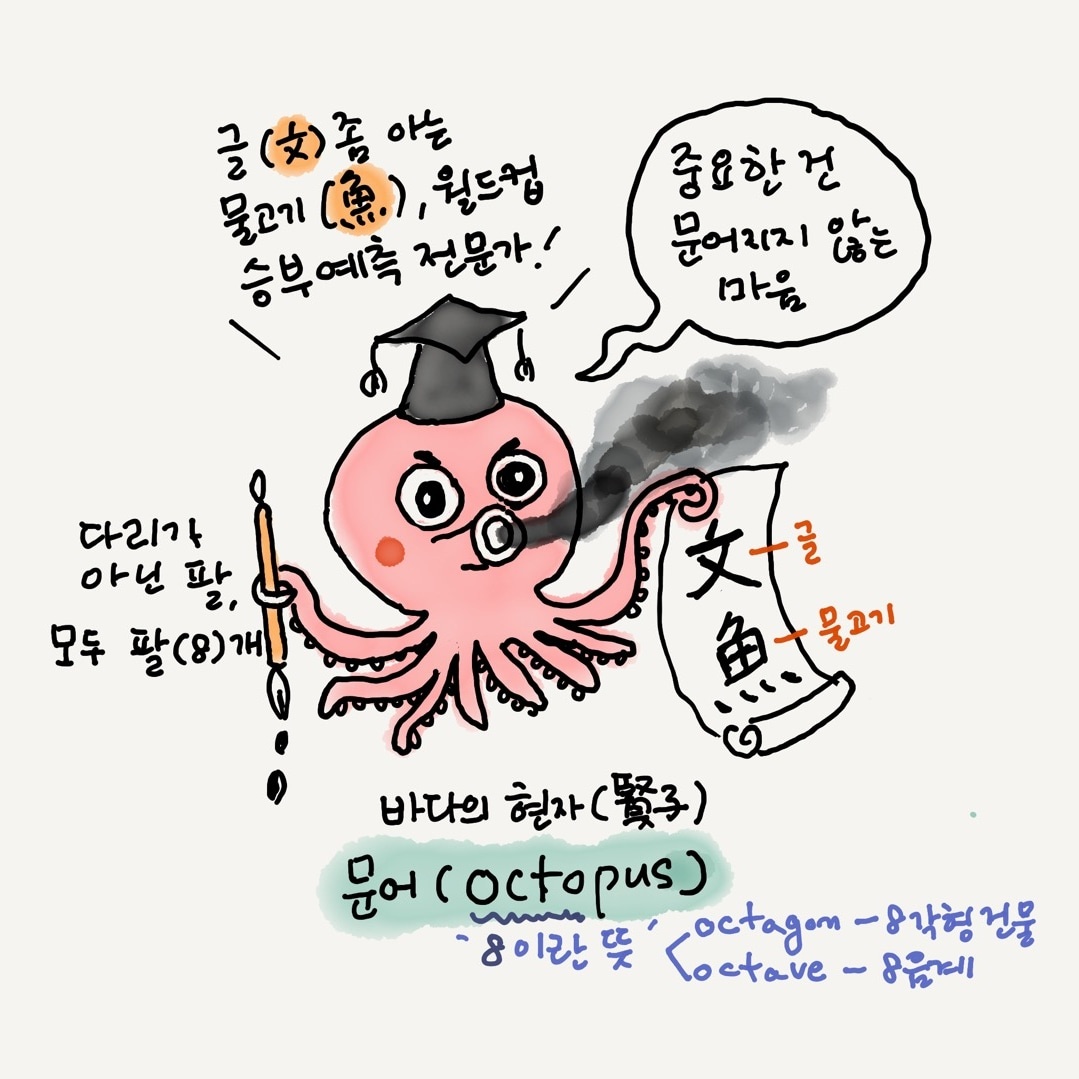 글(文) 좀 아는
물고기(魚), 월드컵
승부예측 전문가!
중요한 건
문어지지 않는
마음
다리가
아닌 팔,
모두 팔(8)개
文 - 글
魚 - 물고기
바다의 현자(賢子)
문어(octopus)
'8이란 뜻'
octagon - 8각형건물
octave - 8음계